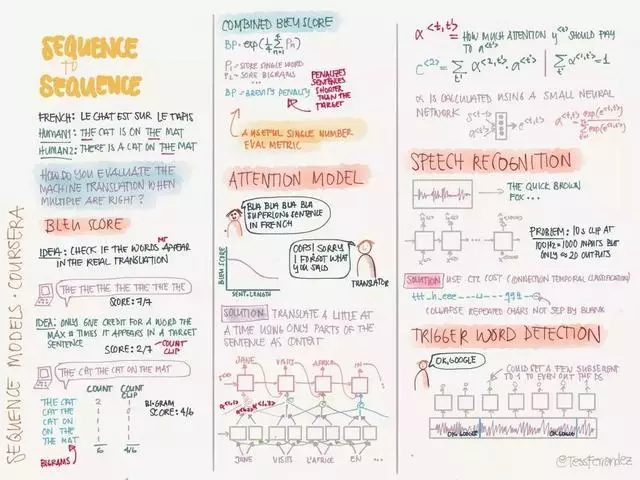 SEQUENCE MODELS • COURSERA
SEQUENCE
to
SEQUENCE
FRENCH: LE CHAT EST SUR LE TAPIS
HUMAN1: THE CAT IS ON THE MAT
HUMAN2: THERE IS A CAT ON THE MAT
HOW DO YOU EVALUATE THE
MACHINE TRANSLATION WHEN
MULTIPLE ARE RIGHT?
BLEU SCORE
IDEA: CHECK IF THE WORDS APPEAR
IN THE REAL TRANSLATION
THE THE THE THE THE THE THE
SCORE: 7/7
IDEA: ONLY GIVE CREDIT FOR A WORD THE
MAX # TIMES IT APPEARS IN A TARGET
SENTENCE
COUNT
CLIP
SCORE: 2/7
THE CAT THE CAT ON THE MAT
COUNT
COUNT
CLIP
THE CAT 2 1
CAT THE 1 0
CAT ON 1 1
ON THE 1 1
THE MAT 1 1
BIGRAM
SCORE: 4/6
4/6
BIGRAMS
COMBINED BLEU SCORE
PENALIZES
SENTENCES
SHORTER
THAN THE
TARGET
BP = BREVITY PENALTY
A USEFUL SINGLE NUMBER
EVAL METRIC
ATTENTION MODEL
BLA BLA BLA BLA
SUPERLONG SENTENCE
IN FRENCH
OOPS! SORRY
I FORGOT WHAT
YOU SAID
TRANSLATOR
BLEU SCORE
SENT. LENGTH
SOLUTION: TRANSLATE A LITTLE AT
A TIME USING ONLY PARTS OF THE
SENTENCE AS CONTEXT
JANE VISITS AFRICA IN ...
JANE VISITE L'AFRIQUE EN ...
α<t,t'> = HOW MUCH ATTENTION y<t> SHOULD PAY
TO a<t'>
α IS CALCULATED USING A SMALL NEURAL
NETWORK
SPEECH RECOGNITION
THE QUICK BROWN
FOX ...
PROBLEM: 10s CLIP AT
100Hz = 1000 INPUTS BUT
ONLY ≈ 20 OUTPUTS
SOLUTION USE CTC COST (CONNECTION TEMPORAL CLASSIFICATION)
COLLAPSE REPEATED CHARS NOT SEP BY BLANK
TRIGGER WORD DETECTION
OK, GOOGLE
COULD SET A FEW SUBSEQUENT
TO 1 TO EVEN OUT THE DS.
OK GOOGLE
OK GOOGLE
@TessFerrandez